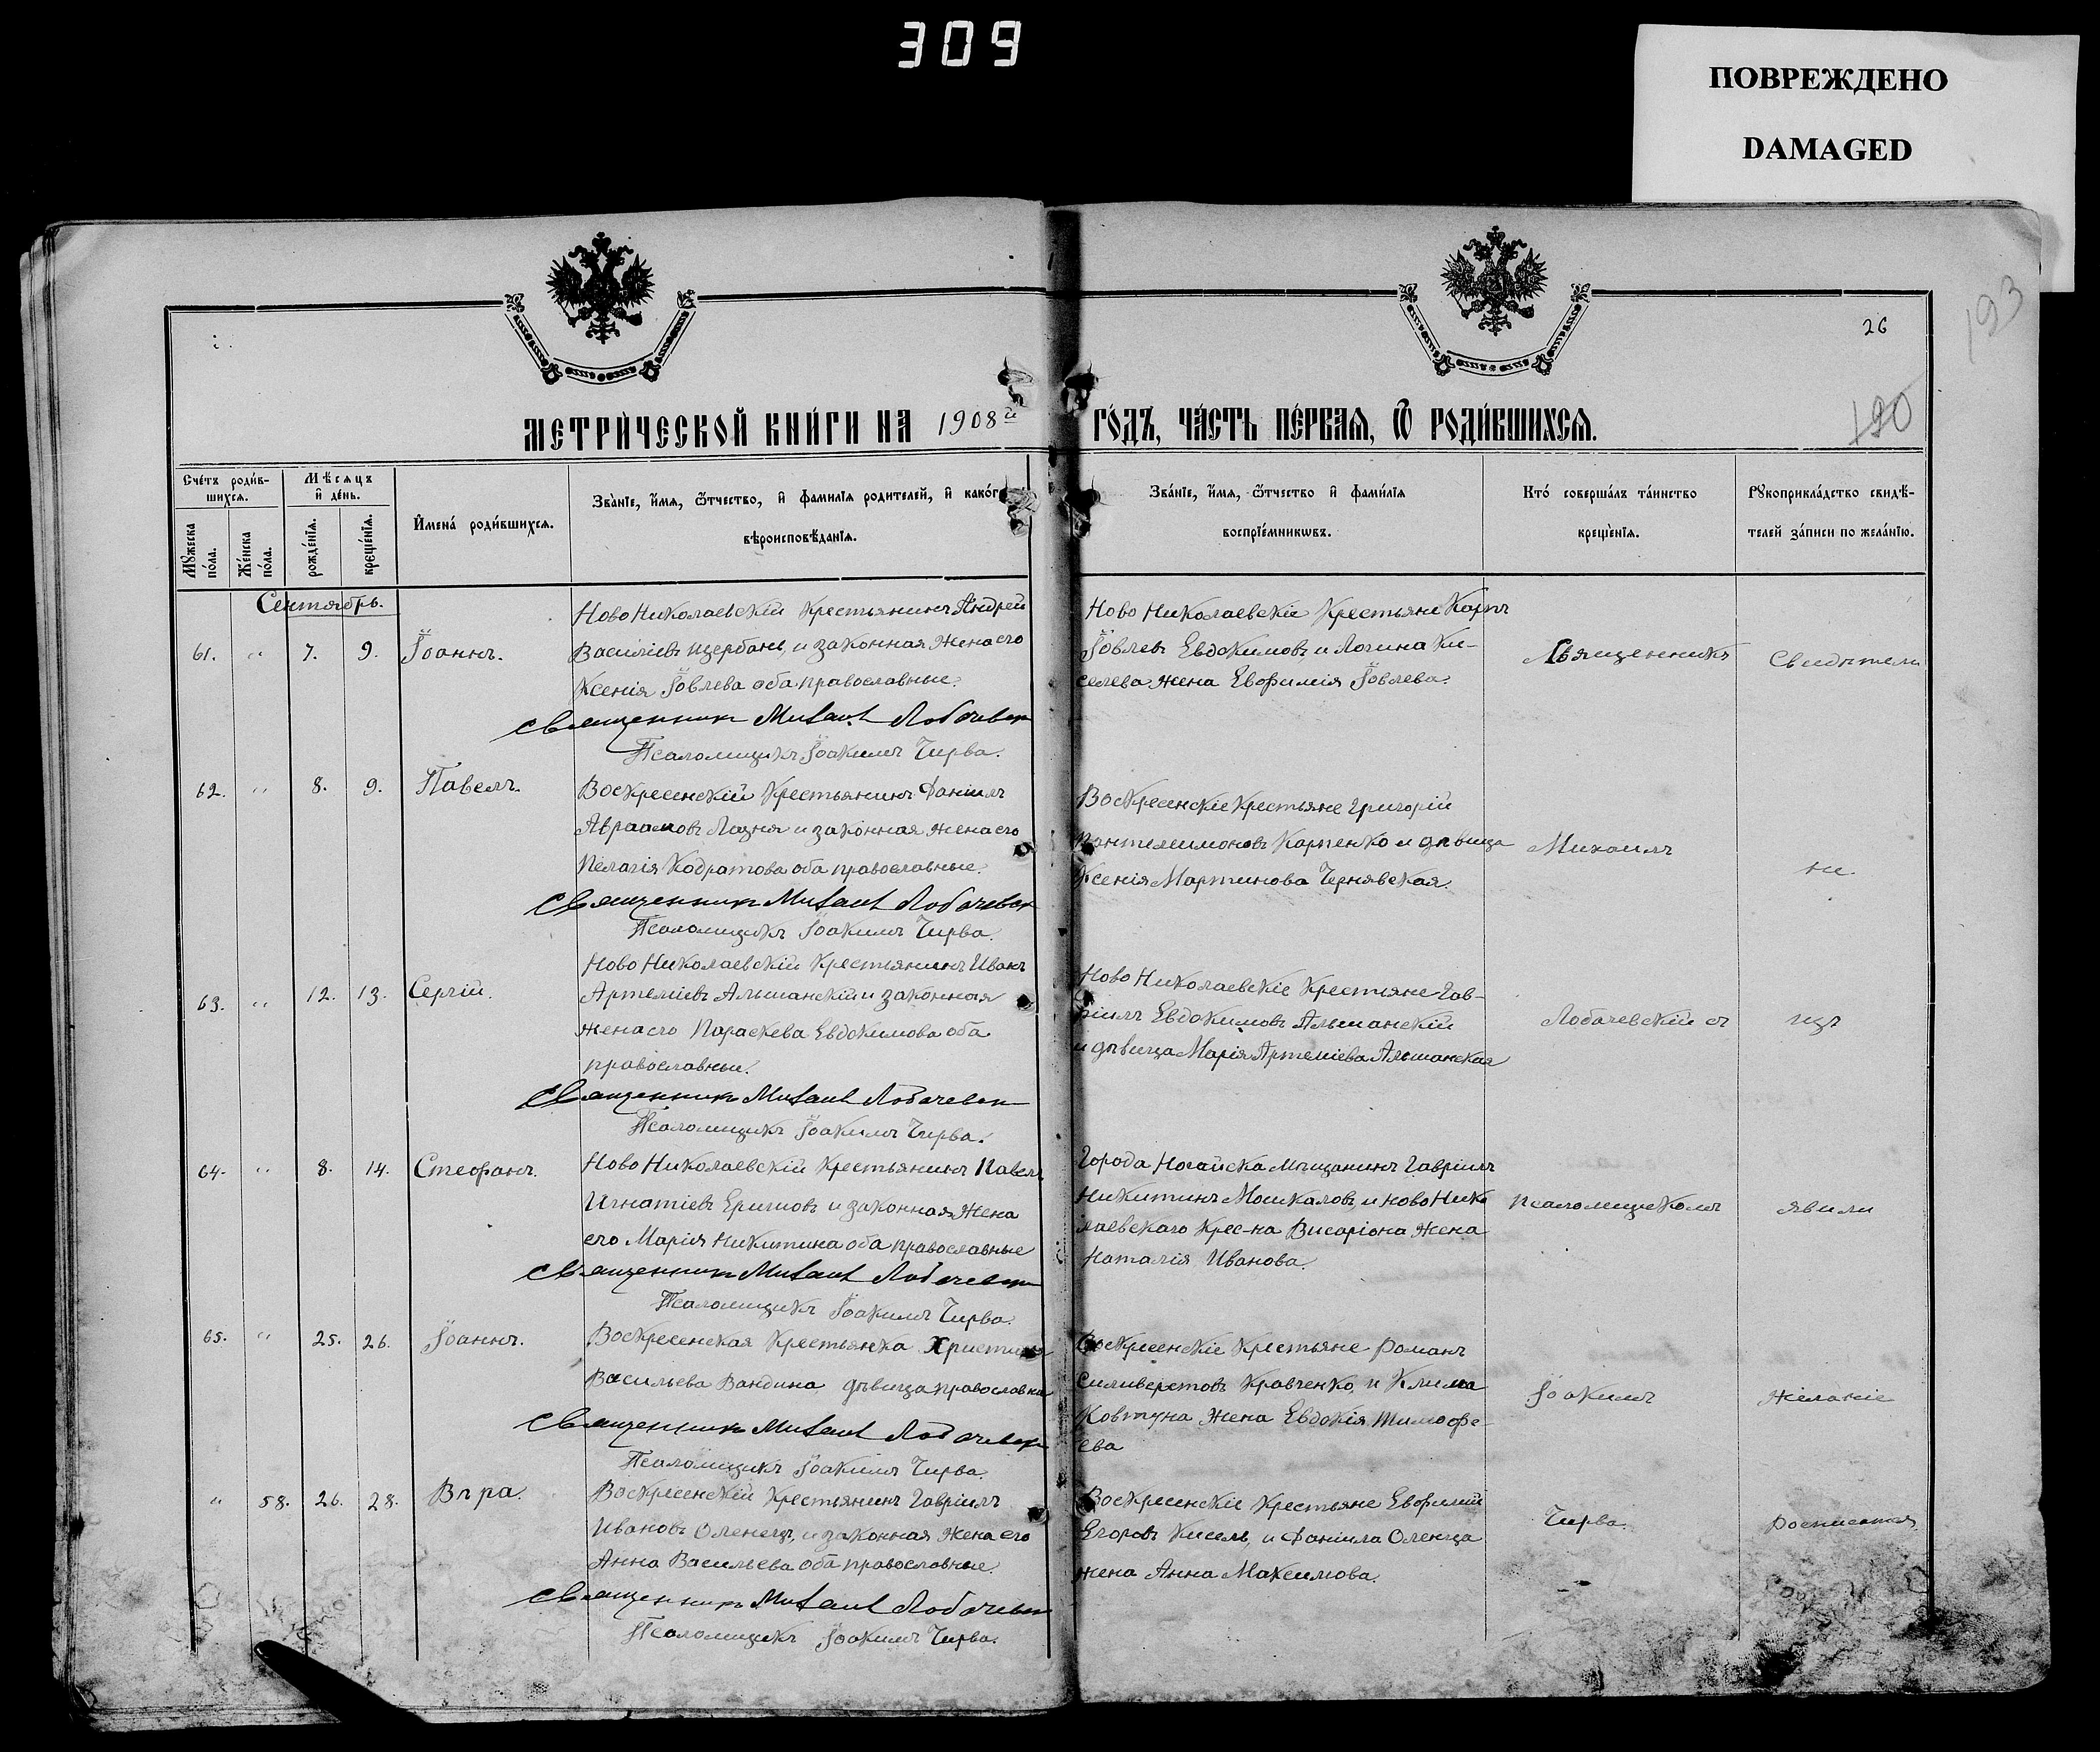 309
ПОВРЕЖДЕНО
DAMAGED
193
26
190
МЕТРИ́ЧЕСКОЙ КНИ́ГИ НА 1908й ГО́ДЪ, ЧА́СТЬ ПЕ́РВАЯ, Ѿ РОДИ́ВШИХСЯ.
Сче́тъ роди́в-
шихся.
Му́жеска по́ла.
Же́нска по́ла.
Мѣсяцъ
и де́нь.
рожде́нія.
креще́нія.
Имена́ роди́вшихся.
Зва́ніе, и́мя, ѻ́тчество, и фамилія родителей, и како́г
вѣроисповѣ́данія.
Зва́ніе, и́мя, ѻ́тчество и фами́лія
воспріе́мниковъ.
Кто́ соверша́лъ та́инство
креще́нія.
Рукоприкла́дство свидѣ́-
телей за́писи по жела́нію.
Сентябрь.
61. " 7. 9. Іоаннъ.
Ново Николаевскій Крестьянинъ Андрей
Василіевъ Щербань, и законная жена его
Ксенія Іовлева оба православные.
Священникъ Михаил Лобачевск
Псаломщикъ Іоакимъ Чирва.
Ново Николаевскіе Крестьяне Карпъ
Іовлевъ Евдокимовъ и Логина Ки-
селева жена Евфимія Іовлева.
62. " 8. 9. Павелъ.
Воскресенскій Крестьянинъ Даніилъ
Авраамовъ Лазня и законная жена его
Пелагія Кодратова оба православные.
Священникъ Михаил Лобачевск
Псаломщикъ Іоакимъ Чирва.
Воскресенскіе Крестьяне Григорій
Пантелеимоновъ Карпенко и дѣвица
Ксенія Мартинова Чернявская.
63. " 12. 13. Сергій.
Ново Николаевскій Крестьянинъ Иванъ
Артеміевъ Альшанскій и законная
жена его Параскева Евдокимова оба
православные.
Священникъ Михаил Лобачевск
Псаломщикъ Іоакимъ Чирва.
Ново Николаевскіе Крестьяне Гав-
ріилъ Евдокимовъ Альшанскій
и дѣвица Марія Артеміева Альшанская
64. " 8. 14. Стефанъ.
Ново Николаевскій Крестьянинъ Павелъ
Игнатіевъ и законная жена
его Марія Никитина оба православные
Священникъ Михаил Лобачевск
Псаломщикъ Іоакимъ Чирва.
Города Ногайска Мѣщанинъ Гавріилъ
Никитинъ Москаловъ, и ново Нико
лаевскаго Крес-на Висаріона жена
Наталія Иванова.
65. " 25. 26. Іоаннъ.
Воскресенская Крестьянка Христина
Васильева Вандина дѣвица православна
Священникъ Михаил Лобачевск
Псаломщикъ Іоакимъ Чирва.
Воскресенскіе Крестьяне Романъ
Силиверстовъ Кравченко, и Клима
Ковтуна жена Евдокія Тимофе-
ева
" 58. 26. 28. Вѣра.
Воскресенскій Крестьянинъ Гавріилъ
Ивановъ Оленецъ, и законная жена его
Анна Васильева оба православные.
Священникъ Михаил Лобачевск
Псаломщикъ Іоакимъ Чирва.
Воскресенскіе Крестьяне Евфимій
Егоровъ Кисель, и Даніила Оленца
жена Анна Максимова.
Священникъ
Михаилъ
Лобачевскій съ
псаломщикомъ
Іоакимъ
Чирва.
Свидѣтели
не
изъ
явили
желаніе
росписатся